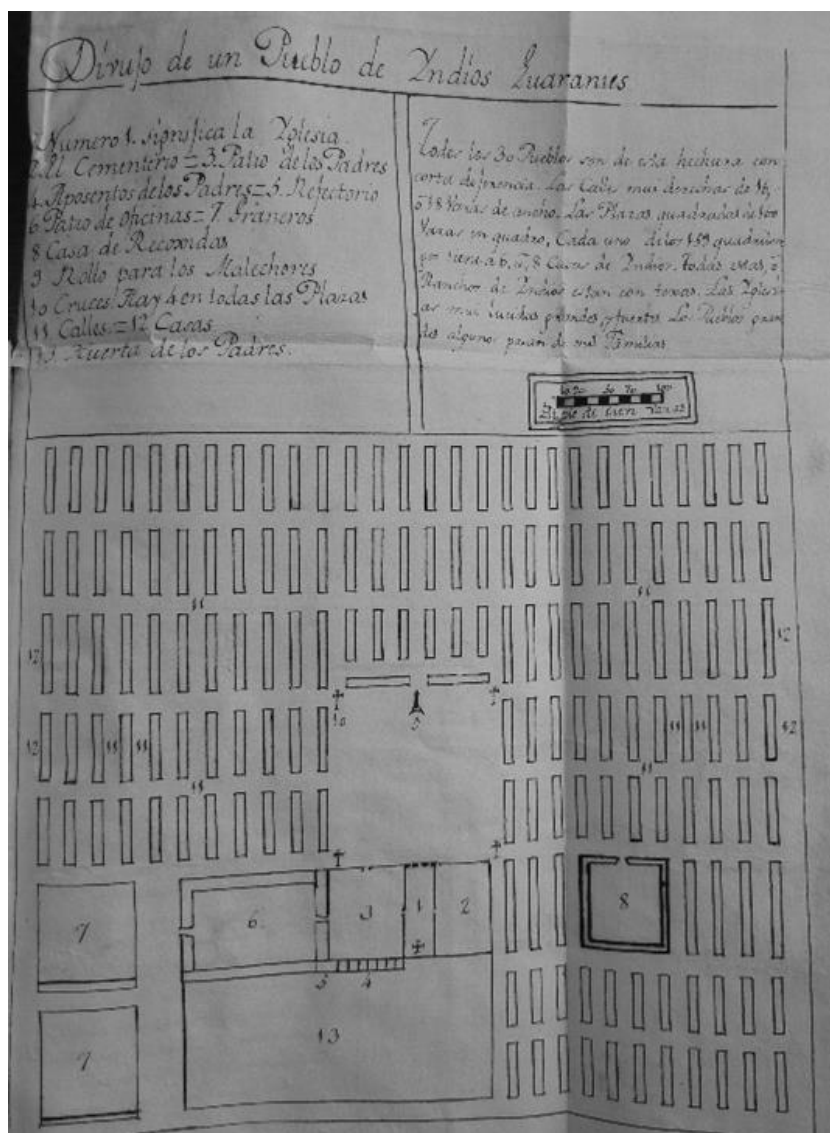 Divujo de un Pueblo de Yndios Guaranies
Numero 1. significa la Yglesia
2. El Cementerio = 3. Patio de los Padres
4. Aposentos de los Padres = 5. Refectorio
6 Patio de oficinas = 7. Graneros
8 Casa de Recoxidas
9 Rollo para los Malechores
10 Cruces Hay 4 en todas las Plazas
11 Calles = 12 Casas
13. Huerta de los Padres.
Todos los 30 Pueblos son de esta hechura con
corta diferencia. Las Calles mui derechas de 16,
ó 18 Varas de ancho. Las Plazas quadradas de 100
Varas en quadro, Cada uno de los 159
tiene a 6, 7, 8 Casas de Yndios. todas estas, ó
Ranchos de Yndios estan con texas. Las Yglesi-
as mui lucidas grandes, y fuertes. Los Pueblos gran-
des algunos pasan de mil Familias
10 20 50 70 100
de cien Varas
11
11
12
12
10
9
12
11
11
11
11
11
12
11
7
6
3
1
2
8
5
4
13
7